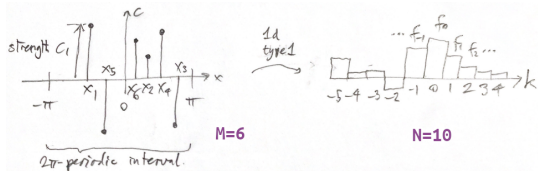 c
strength C₁
x₅
x₃
x
-π
x₁
0
x₆ x₂ x₄
π
M=6
2π-periodic interval.
1d
type 1
... f₋₁ f₀ f₁ f₂ ...
-5 -4 -3 -2 -1 0 1 2 3 4
k
N=10